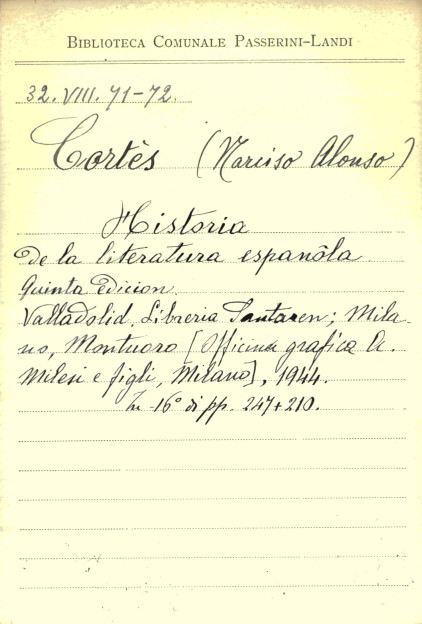 BIBLIOTECA COMUNALE PASSERINI-LANDI
32. VIII. 71-72.
Cortès (Narciso Alonso)
Historia
de la literatura espanôla
Quinta edicion.
Valladolid, Libreria Santaren; Mila-
no, Montuoro [Officina grafica A.
Milesi e figli, Milano], 1944.
In -16° di pp. 247+210.